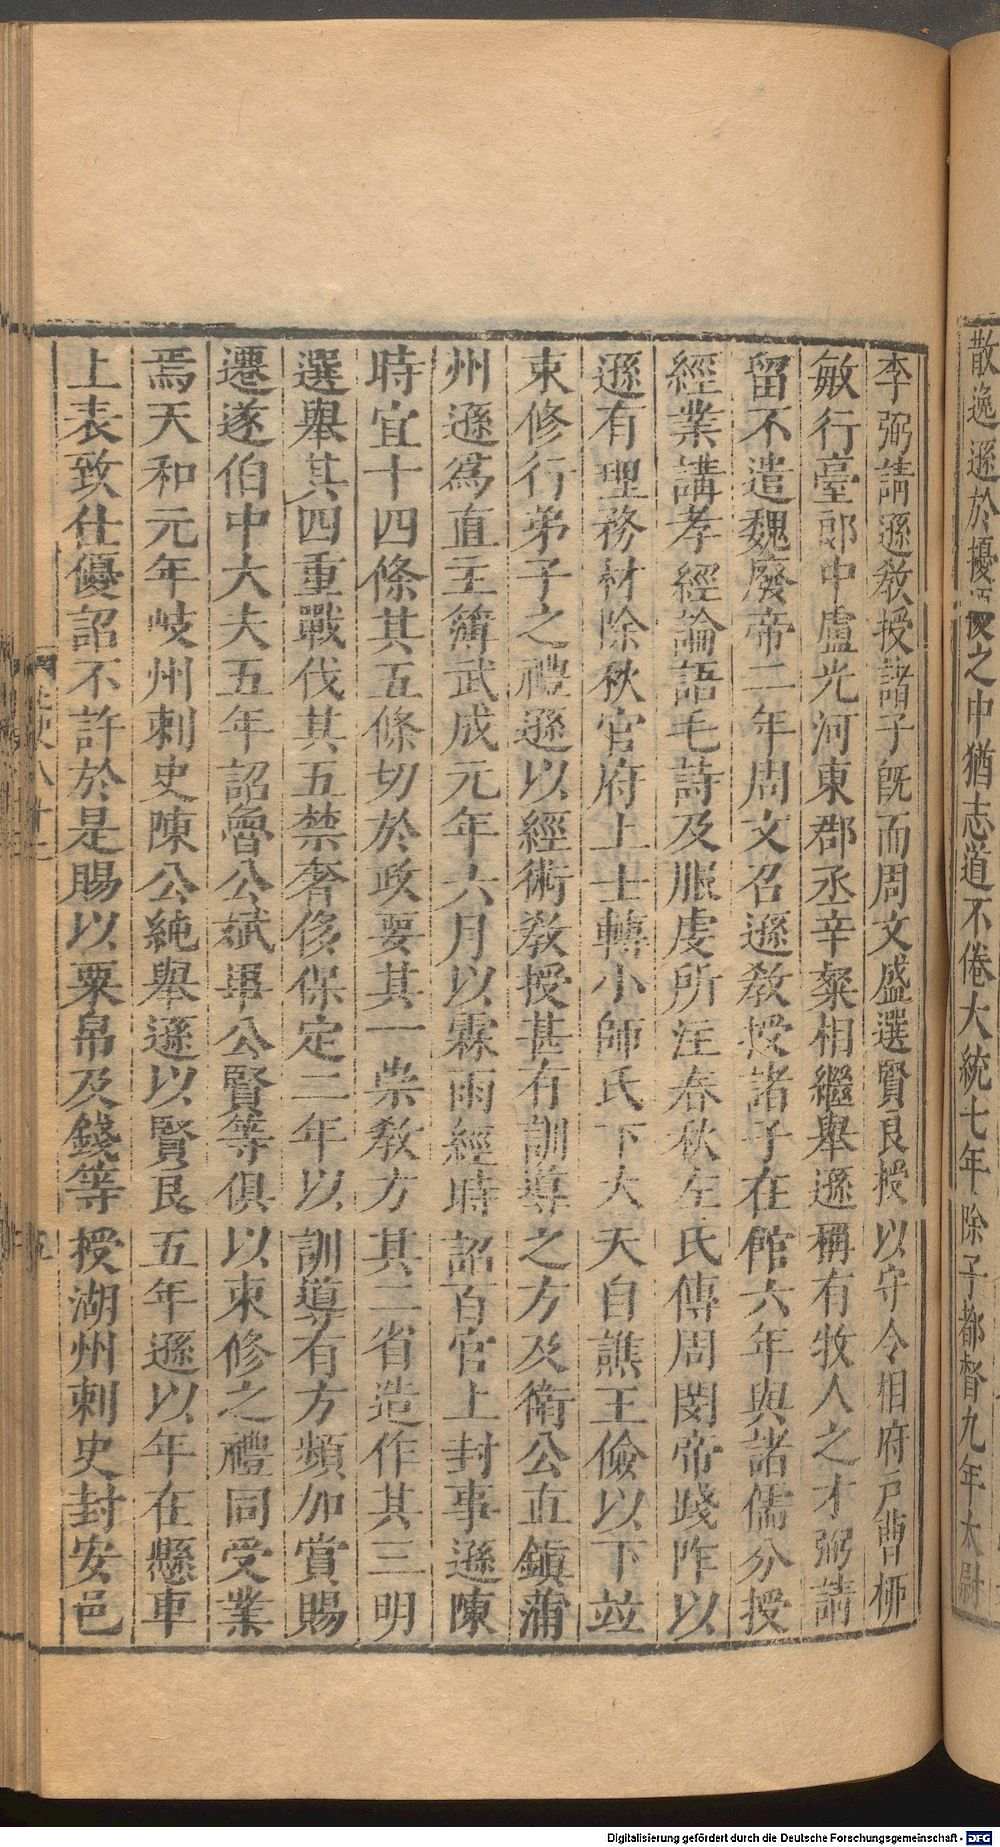 散逸遜於擾攘之中猶志道不倦大統七年除子都督九年太尉
李弼請遜敎授諸子旣而周文盛選賢良授以守令相府戸曹栁
敏行臺郎中盧光河東郡丞辛粲相繼舉遜稱有牧人之才弼請
留不遣魏廢帝二年周文召遜敎授諸子在館六年與諸儒分授
經業講孝經論語毛詩及服虔所注春秋左氏傳周閔帝踐阼以
遜有理務材除秋官府上士轉小師氏下大夫自譙王儉以下竝
束修行弟子之禮遜以經術敎授甚有訓導之方及衛公直鎮蒲
州遜爲直主簿武成元年六月以霖雨經時詔百官上封事遜陳
時宜十四條其五條切於政要其一崇敎方其二省造作其三明
選舉其四重戰伐其五禁奢侈保定二年以訓導有方頻加賞賜
遷遂伯中大夫五年詔魯公斌畢公賢等俱以束修之禮同受業
焉天和元年岐州刺史陳公純舉遜以賢良五年遜以年在懸車
上表致仕優詔不許於是賜以粟帛及錢等授湖州刺史封安邑
北史八十二
五
Digitalisierung gefördert durch die Deutsche Forschungsgemeinschaft - DFG